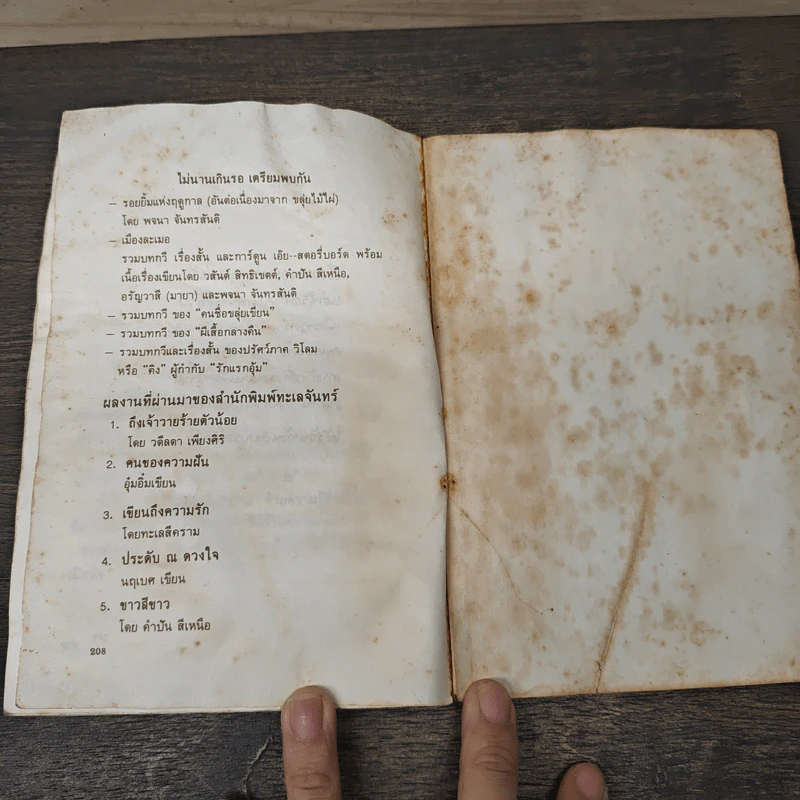 ไม่นานเกินรอ เตรียมพบกัน
– รอยยิ้มแห่งฤดูกาล (อันต่อเนื่องมาจาก ขลุ่ยไม้ไผ่)
โดย พจนา จันทรสันติ
– เมืองละเมอ
รวมบทกวี เรื่องสั้น และการ์ตูน เอ๊ย--สตอรี่บอร์ด พร้อม
เนื้อเรื่องเขียนโดย วสันต์ สิทธิเขตต์, คำปัน สีเหนือ,
อรัญวาสี (มายา) และพจนา จันทรสันติ
– รวมบทกวี ของ “คนชื่อขลุ่ยเขียน”
– รวมบทกวี ของ “ผีเสื้อกลางคืน”
– รวมบทกวีและเรื่องสั้น ของปรัศว์ภาค วิโลม
หรือ “คิง” ผู้กำกับ “รักแรกอุ้ม”
ผลงานที่ผ่านมาของสำนักพิมพ์ทะเลจันทร์
1. ถึงเจ้าวายร้ายตัวน้อย
โดย วดีลดา เพียงศิริ
2. คนของความฝัน
อุ๋มอิ๋มเขียน
3. เขียนถึงความรัก
โดยทะเลสีคราม
4. ประดับ ณ ดวงใจ
นฤเบศ เขียน
5. ขาวสีขาว
โดย คำปัน สีเหนือ
208